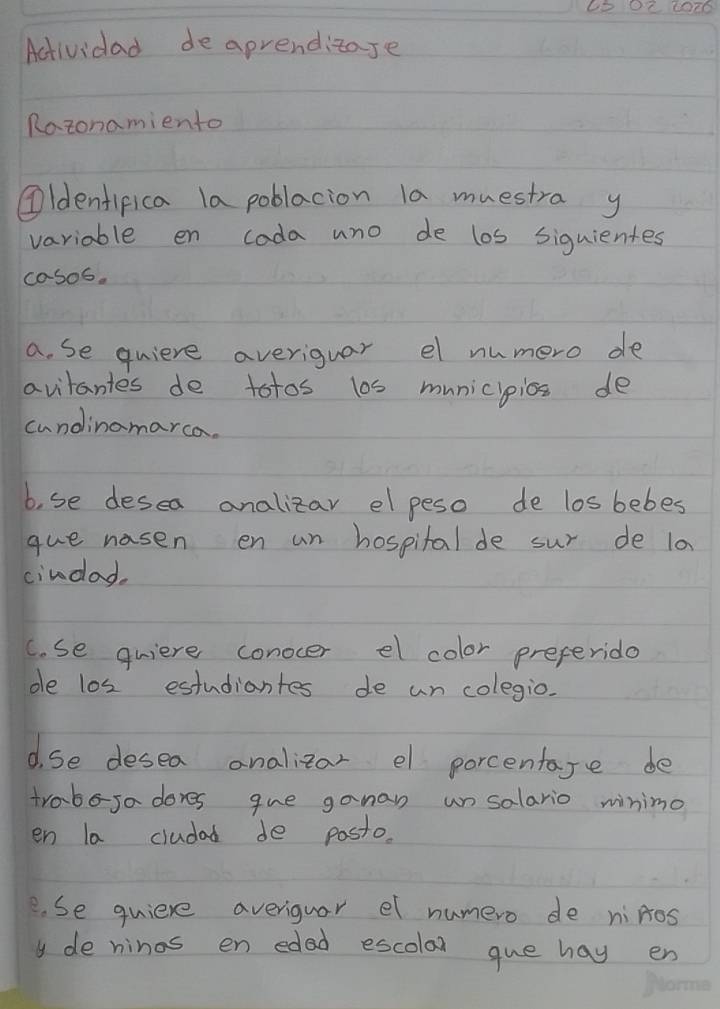 25 02 2026
Actividad de aprendizaje
Razonamiento
① Identifica la poblacion la muestra y
variable en cada uno de los siguientes
casos.
a. Se quiere averiguar el numero de
avitantes de totos los municipios de
cundinamarca.
b. se desea analizar el peso de los bebes
que nasen en un hospital de sur de la
ciudad.
c. se quiere conocer el color preferido
de los estudiantes de un colegio.
d. se desea analizar el porcentaje de
trabajadores que ganan un salario minimo
en la ciudad de pasto.
e. Se quiere averiguar el numero de niños
y de ninas en edad escolar que hay en
Norma